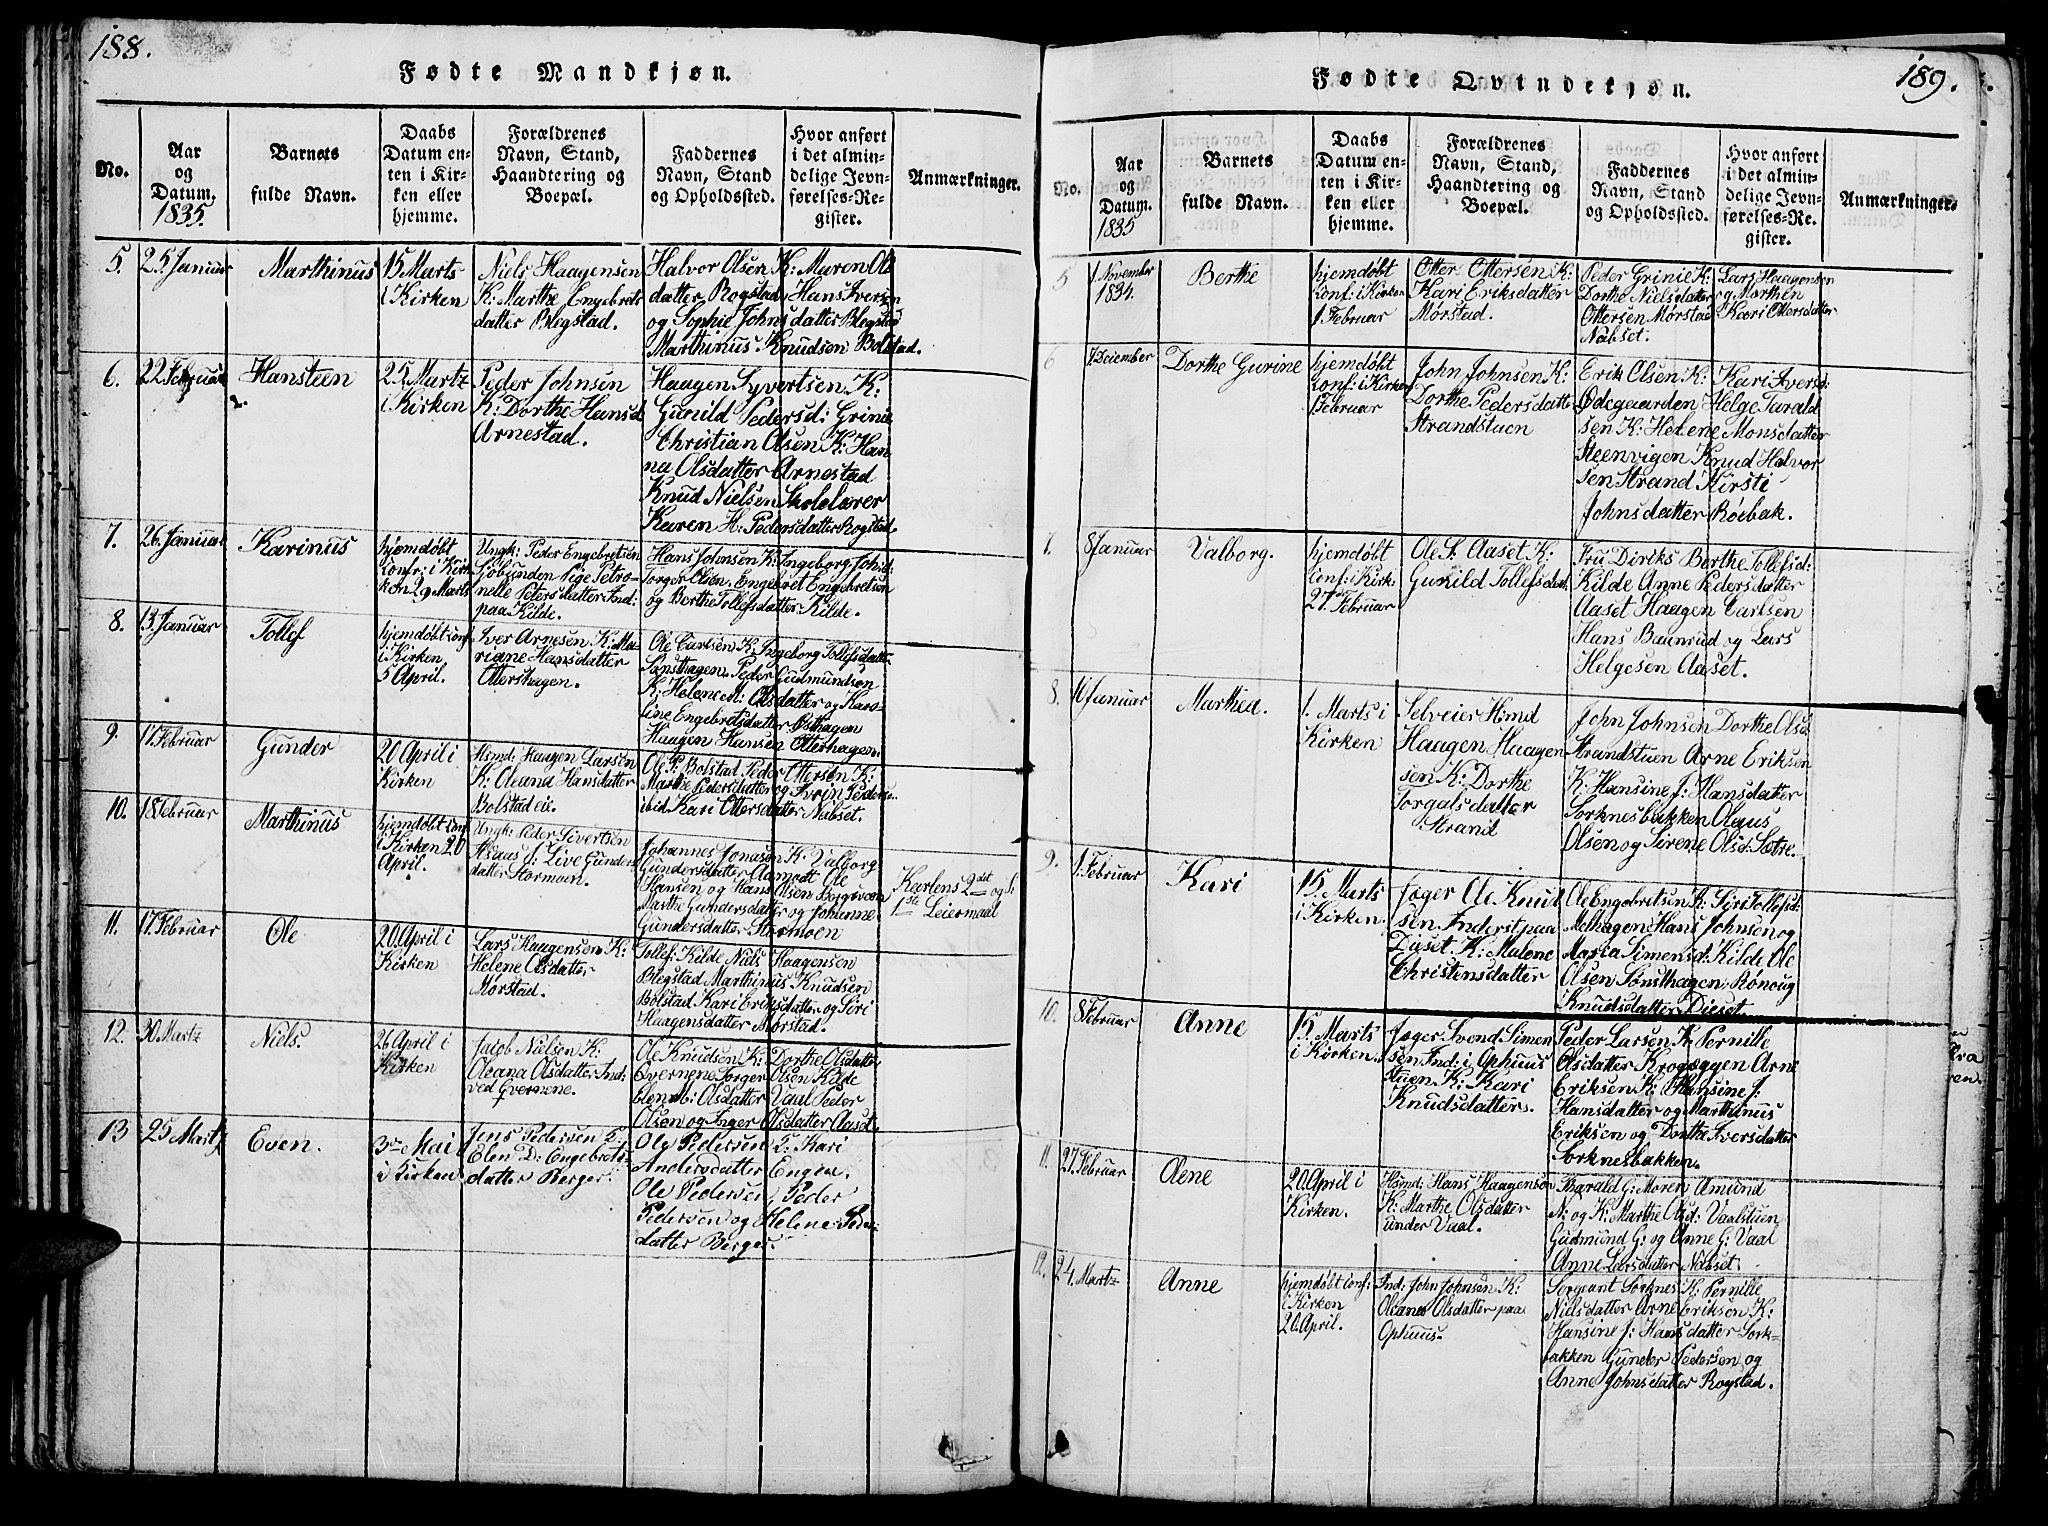 188.
Fødte Mandkjøn.
No.
Aar
og
Datum.
1835.
Barnets
fulde Navn.
Daabs
Datum en-
ten i Kir-
ken eller
hjemme.
Forældrenes
Navn, Stand,
Haandtering og
Boepæl.
Faddernes
Navn, Stand
og Opholdssted.
Hvor anført
i det almin-
delige Jevn-
førelses-Re-
gister.
Anmærkninger.
5.
25 Januar
Marthinus
15 Marts
i Kirken
Niels Haagensen
K: Marthe Engebrets
datter Blegstad.
Halvor Olsen K: Maren Ols
datter Rogstad Hans Iversen
og Sophie Johnsdatter Blegstad
Marthinus Knudsen Bolstad.
6.
22 Februar
Hansteen
25 Martz
i Kirken
Peder Johnsen
K: Dorthe Hansd
Arnestad.
Haagen Syvertsen K:
Gunild Pedersd: Grinie
Christian Olsen K: Han
na Olsdatter Arnestad
Knud Nielsen Skolelærer
Karen H: Pedersdatter Rogstad.
7.
26 Januar
Karinus
hjemdøbt
conf: i Kir
ken 29 Marts
Ungk: Peder Engebretsen
Sjøbunden Pige Petro-
nelle Petersdatter Ind:
paa Kilde.
Hans Johnsen K: Ingeborg Johsd:
Torger Olsen. Engebret Engebretsen
og Berthe Tollefsdatter Kilde.
8.
13 Januar
Tollef
hjemdøbt conf
i Kirken
5 April.
Iver Arnesen K: Ma-
riane Hansdatter
Ottershagen.
Ole Carlsen K: Ingeborg Tollefsdatter
Sønsthagen. Peder Gudmundsen
K: Helene M: Olsdatter og Karo-
line Engebretsdatter Østhagen
Haagen Hansen Otterhagen
9.
17 Februar
Gunder
20 April i
Kirken
Hsmd: Haagen Larsen
K: Oleana Hansdatter
Bolstad eie.
Ole P: Bolstad Peder Ottersen K:
Marthe Pedersdatter og Iver Peders:
ibid Kari Ottersdatter Nabset.
10.
18 Februar
Marthinus
hjemdøbt conf
i Kirken 20
April.
Ungk: Peder Sivertsen
Aaaas P: Live Gunders
datter Stormoen.
Johannes Jonasen K: Valborg
Gundersdatter Aamodt Ole
Hansen og Hans Olsen Borgsveen
Marthe Gundersdatter og Johanne
Gundersdatter Stormoen
Karlens 2det og P:
1ste Leiermaal
11.
17 Februar
Ole
20 April i
Kirken
Lars Haagensen K:
Helene Olsdatter
Mørstad.
Tollef: Kilde Niels Haagensen
Blegstad Marthinus Knudsen
Bolstad Kari Eriksdatter og Siri
Haagensdatter Mørstad.
12.
30 Martz
Niels.
26 April i
Kirken
Jacob Nielsen K:
Oleana Olsdatter Ind:
ved Qvernene.
Ole Knudsen K: Dorthe Olsdatter
Qvernene Torger Olsen Kilde
Elen M: Olsdatter Vaal Peder
Olsen og Inger Olsdatter Aaset.
13
25 Martz
Even.
3die Mai
i Kirken
Jens Pedersen K:
Elen D: Engebrets
datter Berger.
Ole Pedersen K: Kari
Andersdatter Engen.
Ole Pedersen, Peder
Pedersen og Helene Peders
datter Berger.
189.
Fødte Qvindekjøn.
No.
Aar
og
Datum.
1835
Barnets
fulde Navn.
Daabs
Datum en-
ten i Kir-
ken eller
hjemme.
Forældrenes
Navn, Stand,
Haandtering og
Boepæl.
Faddernes
Navn, Stand
og Opholdssted.
Hvor anført
i det almin-
delige Jevn-
førelses-Re-
gister.
Anmærkninger.
5
1 November
1834.
Berthe
hjemdøbt
Conf: i Kirken
1 Februar
Otter Ottersen K:
Kari Eriksdatter
Mørstad.
Peder Grinie K: Lars Haagensen
Dorthe Nielsdatter og Marthin
Ottersen Mørstad Kari Ottersdatter
Nabset.
6
7 December
Dorthe Gurine
hjemdøbt
Conf: i Kirken
1 Februar
John Johnsen K:
Dorthe Pedersdatter
Strandstuen
Erik Olsen K: Kari Iversd:
Ødegaarden Helge Tarald
sen K: Helene Monsdatter
Steenvigen Knud Halvor
sen Strand Kirsti
Johnsdatter Røebak.
7.
8 Januar
Valborg.
hjemdøbt
Conf: i Kirk:
27 Februar
Ole P: Aaset K:
Gunild Tollefsdat.
Fru Diriks Berthe Tollefsd:
Kilde Anne Pedersdatter
Aaset Haagen Carlsen
Hans Baunrud og Lars
Helgesen Aaset.
8.
10 Januar
Marthea.
1. Marts i
Kirken
Selveier Hsmd
Haagen Haagen
sen K: Dorthe
Torgalsdatter
Strand
John Johnsen Dorthe Olsd
Strandstuen Arne Eriksen
K: Hansine J: Hansdatter
Sorknesbakken Olaus
Olsen og Sirene Olsd: Sætre.
9.
1 Februar
Kari
15. Marts
i Kirken.
Jøger Ole Knut
sen Inderst paa
Diset. K: Malene
Christensdatter
Ole Engebretsen K: Siri Tollefsd:
Melhagen Hans Johnsen og
Maria Simensd: Kilde Ole
Olsen Sønsthagen, Rønoug
Knudsdatter Dieset.
10.
8 Februar
Anne
15. Marts
i Kirken.
Jøger Svend Simen
sen Ind: i Ophuus
stuen K: Kari
Knudsdatter.
Peder Larsen K: Pernille
Olsdatter Krogæggen Arne
Eriksen K: Hansine J:
Hansdatter og Marthinus
Eriksen og Dorthe Iversdatter
Sorknesbakken.
11.
27 Februar
Olene
20 April i
Kirken.
Hsmd: Hans Haagensen
K: Marthe Olsdatter
under Vaal.
Tharald G: Moren Amund
N: og K: Marthe Olsd: Vaalstuen
Gudmund G: og Anne G: Vaal
Anne Larsdatter Nabset.
12.
24 Martz
Anne
hjemdøbt conf:
i Kirken
20 April.
Ind: John Johnsen K:
Oleane Olsdatter paa
Ophuus.
Sergeant Sorknes K: Pernille
Nielsdatter Arne Eriksen K:
Hansine J: Hansdatter Sork-
bakken Gunder Pedersen og
Anne Johnsdatter Rogstad.